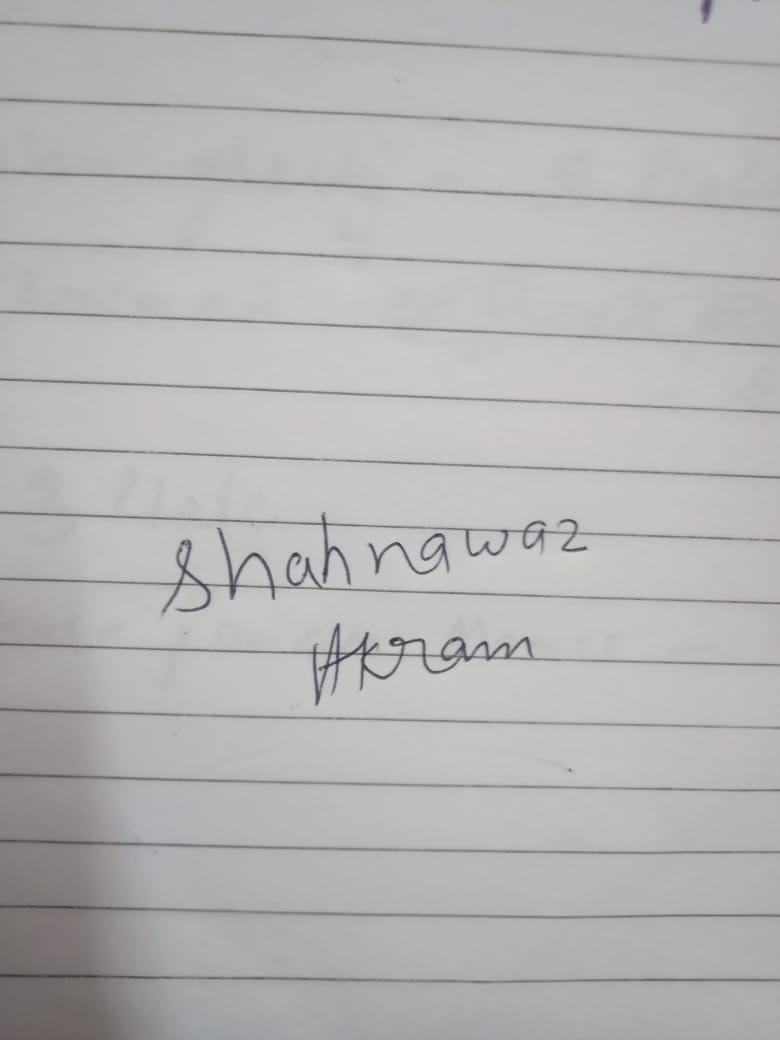 Shahnawaz
Akram